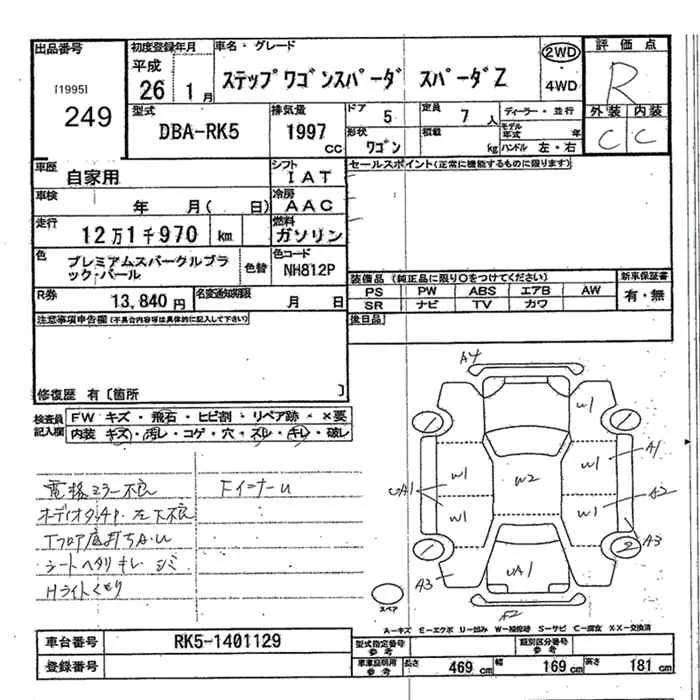 出品番号
[1995]
249
初度登録年月
平成
26 1月
車名・グレード
ステップワゴンスパーダ スパーダZ
2WD
・
4WD
評価点
R
外装 内装
C C
型式
DBA-RK5
排気量
1997
cc
ドア 5
定員 7人
ディーラー・並行
モデル年式 年
形状 ワゴン
積載 kg
ハンドル 左・右
車歴 自家用
シフト IAT
セールスポイント(正常に機能するものに限ります)
車検 年 月( 日)
冷房 AAC
走行 12万1千970 km
燃料 ガソリン
色 プレミアムスパークルブラック・パール
色替
色コード NH812P
装備品(純正品に限り○をつけてください)
新車保証書
PS PW ABS エアB AW
有・無
R券 13,840円
名変通知期限 月 日
SR ナビ TV カワ
注意事項申告欄(不具合内容等は具体的に記入して下さい)
後日品
修復歴 有〔箇所 〕
検査員記入欄
FW キズ・飛石・ヒビ割・リペア跡・×要
内装 キズ・汚レ・コゲ・穴・スレ・キレ・破レ
電格ミラー不良 Fインナーu
オーディオタッチP 左下不良
Tフロア底打ちA.u
シートヘタリ キレ シミ
Hライトくもり
A4
W1
A1
W1 W2 W1
UA1
A2
W1 W1
A3
2
A3
UA1
A2
スペア
A−キズ E−エクボ U−凹み W−補修跡 S−サビ C−腐食 X・XX−交換済
車台番号 RK5-1401129
型式指定番号 参考
類別区分番号 参考
登録番号
車庫証明用 参考
長さ 469 cm
幅 169 cm
高さ 181 cm